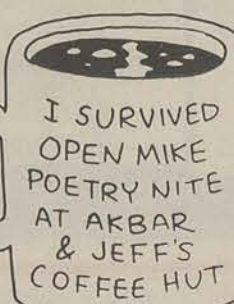 I SURVIVED
OPEN MIKE
POETRY NITE
AT AKBAR
& JEFF'S
COFFEE HUT